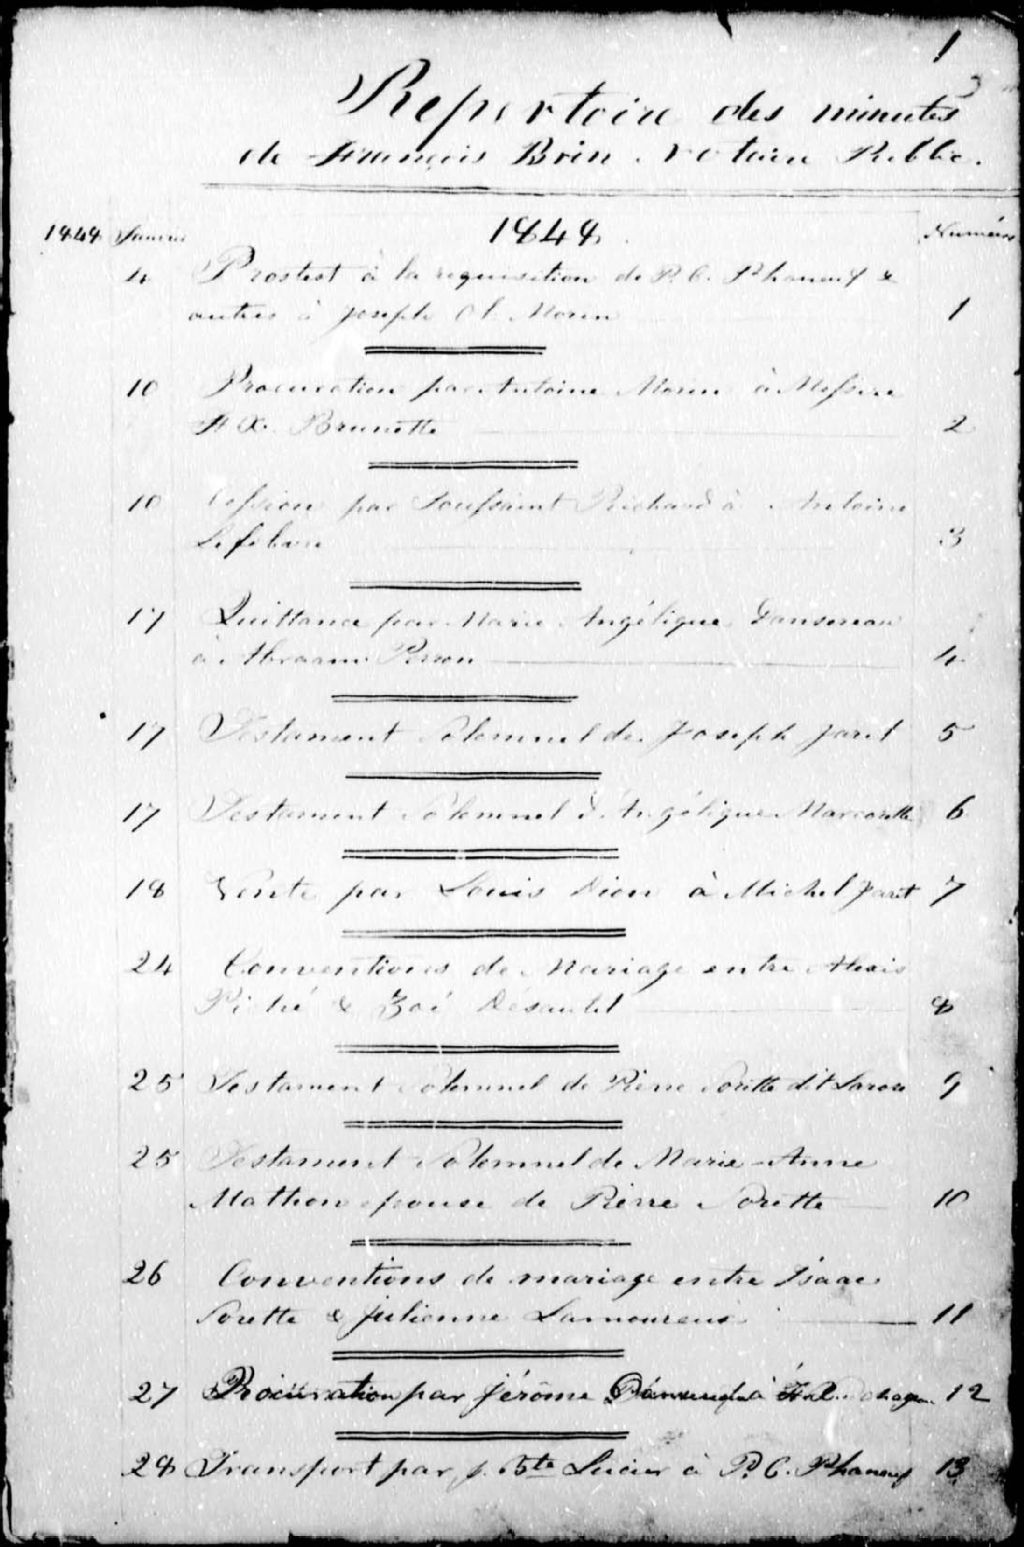 1
Repertoire des minutes
de François Brin Notaire Public.
1848 Janvier 1848 Numéros
4 Prostest à la requisition de P. C. Phaneuf &
autres à Joseph Ol. Morin 1
10 Procuration par Antoine Morin à Messire
F X. Brunette 2
10 Cession par Toussaint Richard à Antoine
Lefebvre 3
17 Quittance par Marie Angélique Dansereau
à Abraam Perron 4
17 Testament Solemnel de Joseph Jaret 5
17 Testament Solemnel d'Angélique Marcotte 6
18 Vente par Louis Dion à Michel Jaret 7
24 Conventions de Mariage entre Alexis
Piché & Zoé Désautel 8
25 Testament Solemnel de Pierre Sorette dit 9
25 Testament Solemnel de Marie-Anne
Mathon epouse de Pierre Sorette 10
26 Conventions de mariage entre Isaac
Sorette & Julienne Lamoureux 11
27 Procuration par Jérôme à 12
28 Transport par J. Bte Lucier à P. C. Phaneuf 13